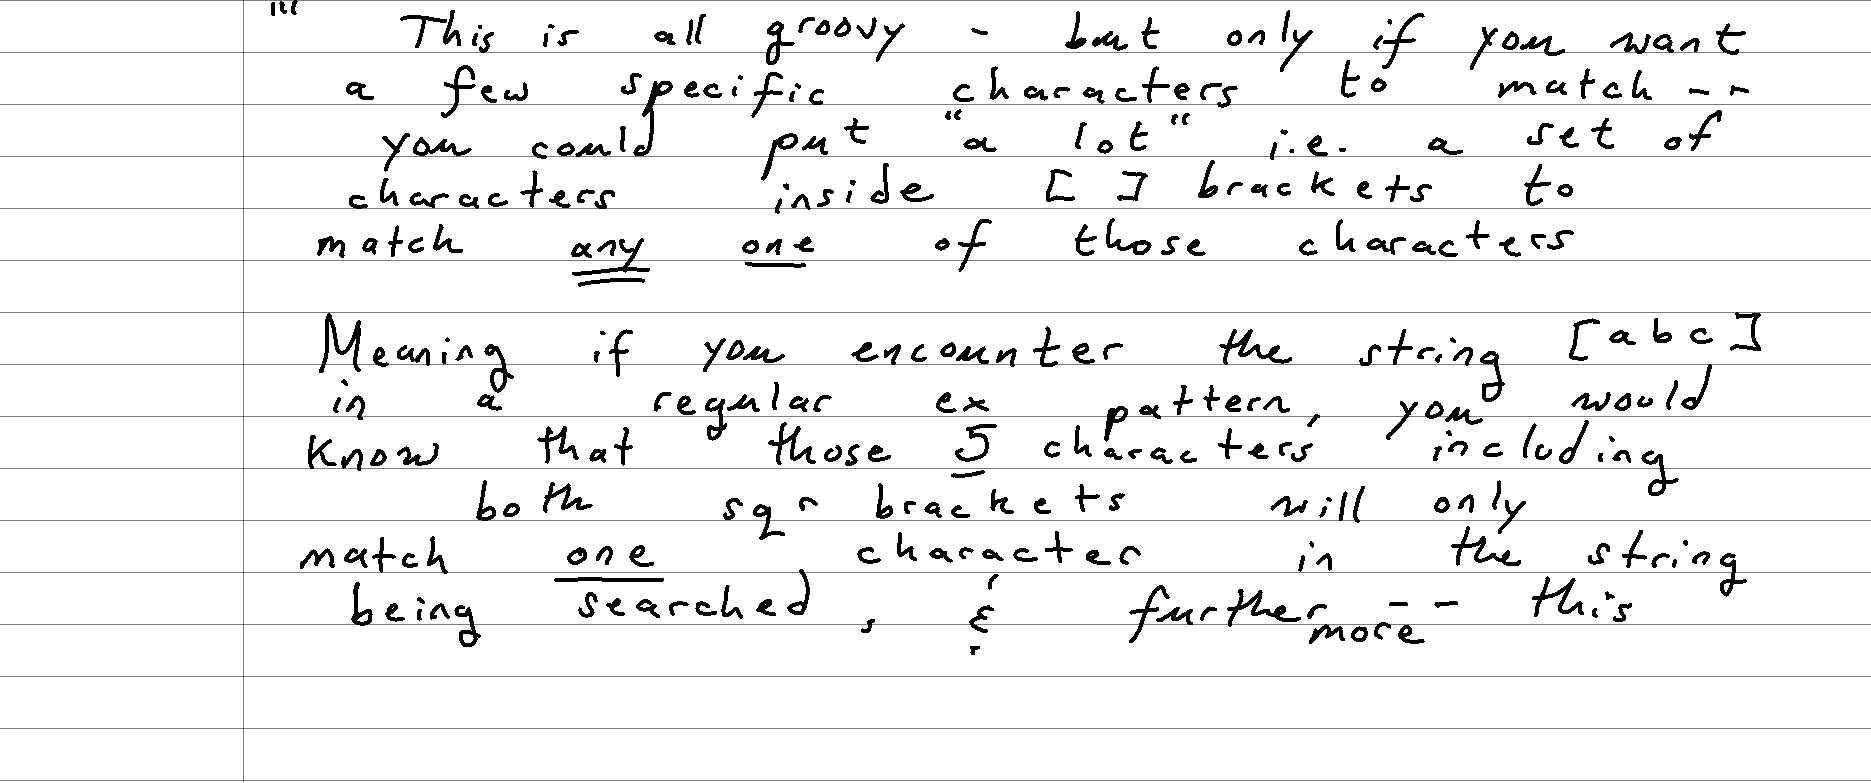 "' This is all groovy - but only if you want
a few specific characters to match --
you could put "a lot" i.e. a set of
characters inside [ ] brackets to
match any one of those characters
Meaning if you encounter the string [abc]
in a regular ex pattern, you would
know that those 5 characters including
both sqr brackets will only
match one character in the string
being searched, & furthermore -- this